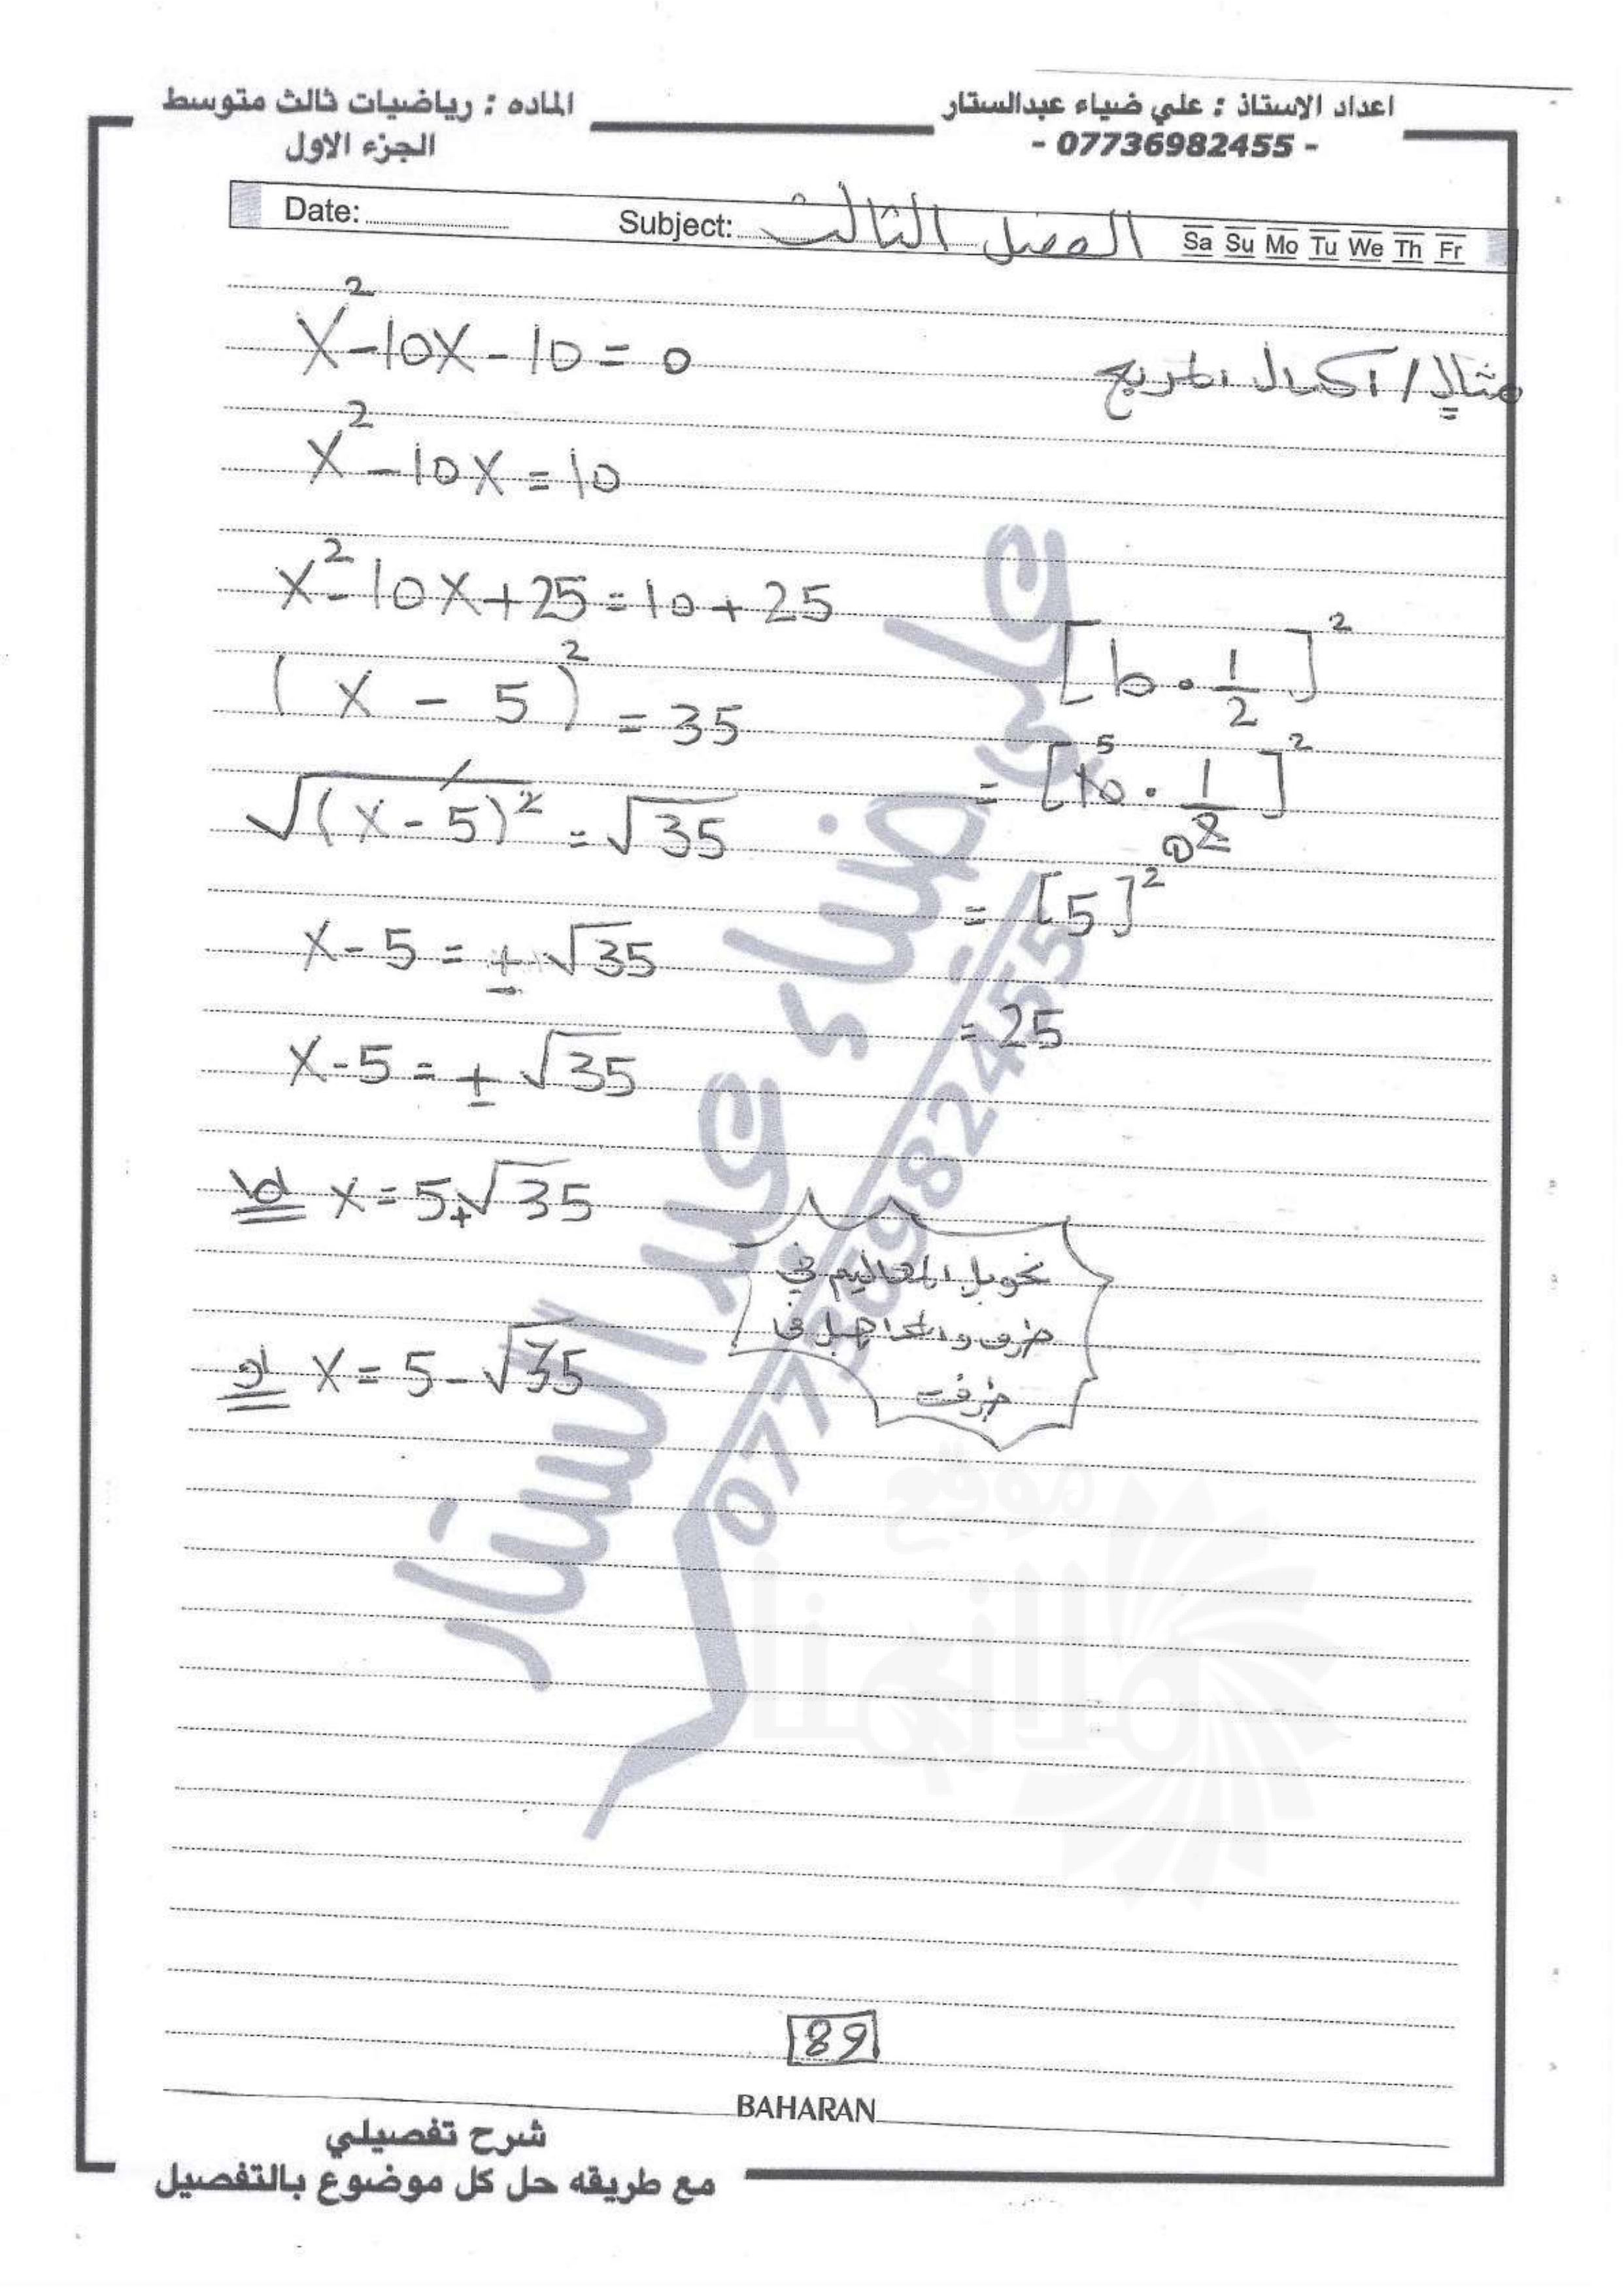 اعداد الاستاذ : علي ضياء عبدالستار
- 07736982455 -
الماده : رياضيات ثالث متوسط
الجزء الاول
Date: Subject: الفصل الثالث Sa Su Mo Tu We Th Fr
مثال / اكمال المربع
x² - 10x - 10 = 0
x² - 10x = 10
x² - 10x + 25 = 10 + 25
(x - 5)² = 35
√(x - 5)² = √35
x - 5 = ± √35
x - 5 = ± √35
اما x = 5 + √35
او x = 5 - √35
[b . 1/2]²
= [10 5 . 1/2 1]²
= [5]²
= 25
تحويل المعاليم في
طرف والمجاهيل في
طرف
علي ضياء عبد الستار
07736982455
موقع
89
BAHARAN
شرح تفصيلي
مع طريقه حل كل موضوع بالتفصيل